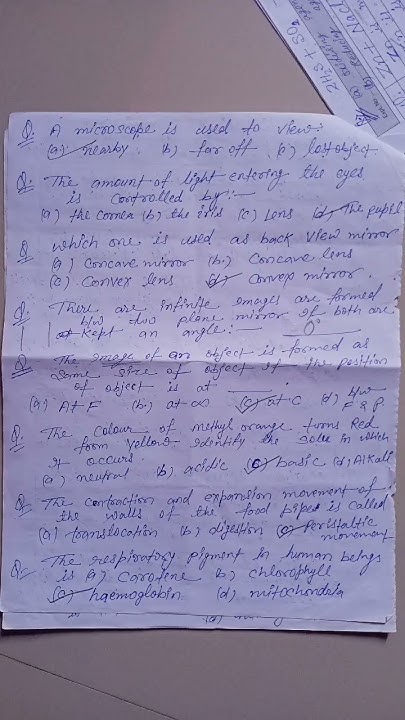 2H2S + SO2
Zn + NaCl
Q. A microscope is used to view:
(a) nearby (b) far off (c) lost object.
Q. The amount of light entering the eyes
is controlled by:-
(a) the cornea (b) the iris (c) Lens (d) The pupil
Q which one is used as back view mirror
(a) concave mirror (b) Concave lens
(c) Convex lens (d) Convex mirror.
Q. There are infinite images are formed
b/w two plane mirror if both are
at kept an angle: 0°
Q The image of an object is formed as
same size of object if the position
of object is at ___.
(a) At F (b) at ∞ (c) at C (d) b/w
F & P.
Q. The colour of methyl orange turns Red
form Yellow identify the solu in which
it occurs.
(a) neutral (b) acidic (c) basic (d) Alkali
Q. The contraction and expansion movement of
the walls of the food pipes is called
(a) translocation (b) digestion (c) Peristaltic
movement
Q. The respiratory pigment in human beings
is (a) Carotene b) chlorophyll
(c) haemoglobin (d) mitochondria